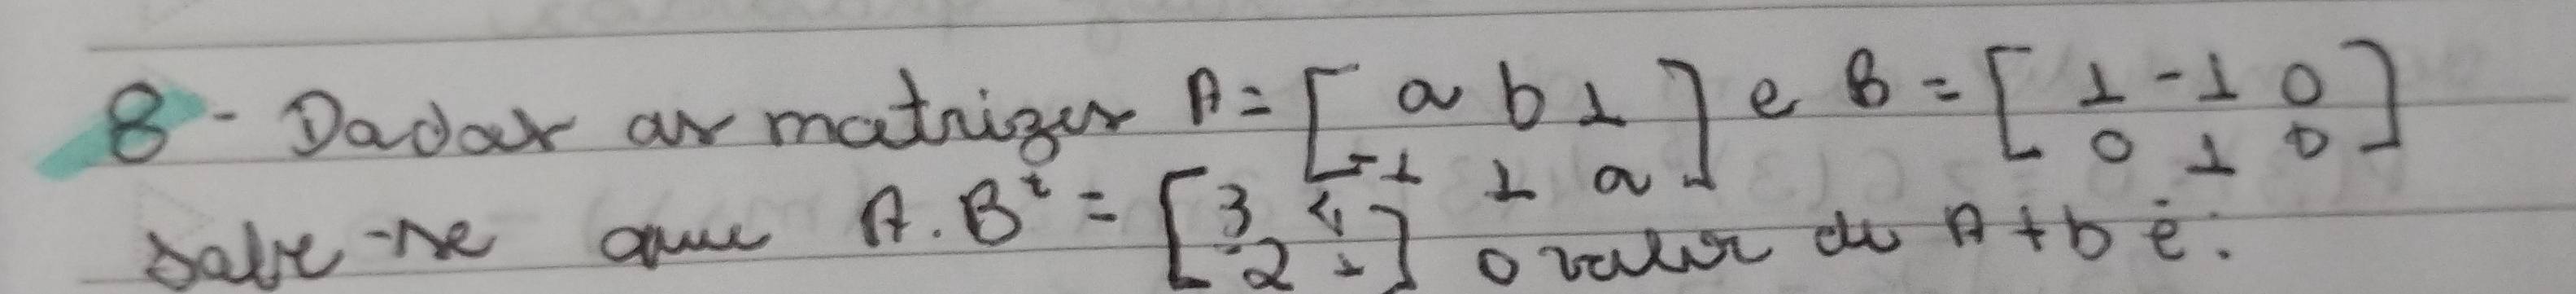 8 - Dadas as matrizes A = [ a b 1 ] e B = [ 1 -1 0 ]
-1 1 a 0 1 0
sabe-se que A.Bᵗ = [ 3 4 ] o valor de A + b é:
-2 1